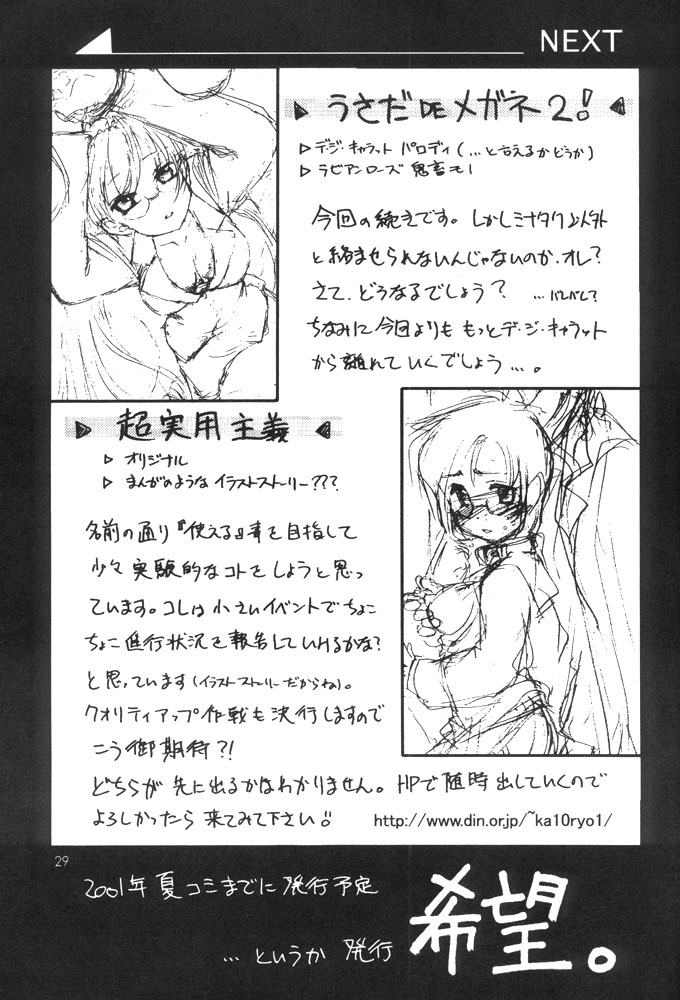 NEXT
うさだDEメガネ2!
▷デ・ジ・キャラット パロディ(…と言えるかどうか)
▷ラビアンローズ 鬼畜モノ
今回の続きです。しかしミナタク以外
と絡ませられないんじゃないのか、オレ?
さて、どうなるでしょう? …バレバレ?
ちなみに今回よりも もっとデ・ジ・キャラット
から離れていくでしょう…。
超実用主義
▷オリジナル
▷まんがのような イラストストーリー???
名前の通り『使える』事を目指して
少々実験的なコトをしようと思っ
ています。コレは小さいイベントでちょこ
ちょこ進行状況を報告していけるかな?
と思っています(イラストストーリーだからね)。
クオリティアップ作戦も決行しますので
こう御期待?!
どちらが先に出るかはわかりません。HPで随時出していくので
よろしかったら 来てみて下さい!!
http://www.din.or.jp/~ka10ryo1/
29
2001年夏コミまでに発行予定
…というか 発行
希望。